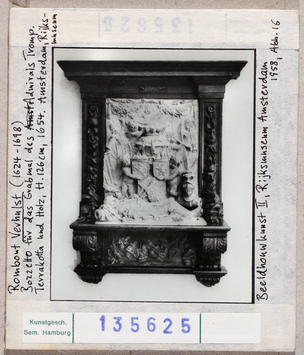 Rombout Verhulst (1624-1698)
Bozzetto für das Grabmal des Admirals Tromp.
Terrakotta und Holz, H.126cm, 1654. Amsterdam, Rijks-
museum
Beeldhouwkunst II, Rijksmuseum Amsterdam
1958, Abb. 16
Kunstgesch.
Sem. Hamburg
135625